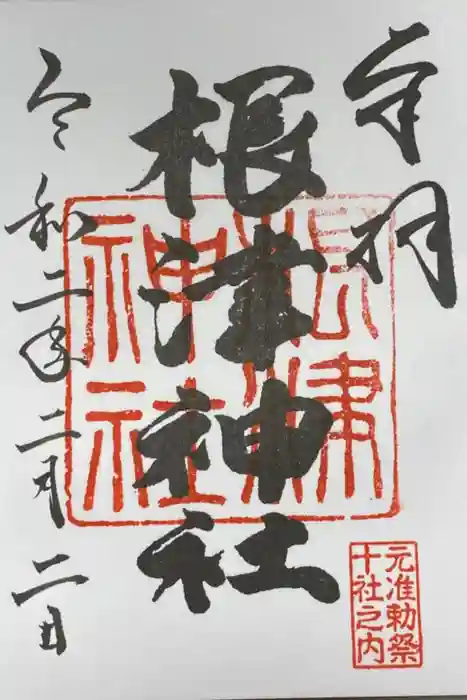 奉拝
根津神社
根津
神社
令和二年二月二日
元准勅祭
十社之内